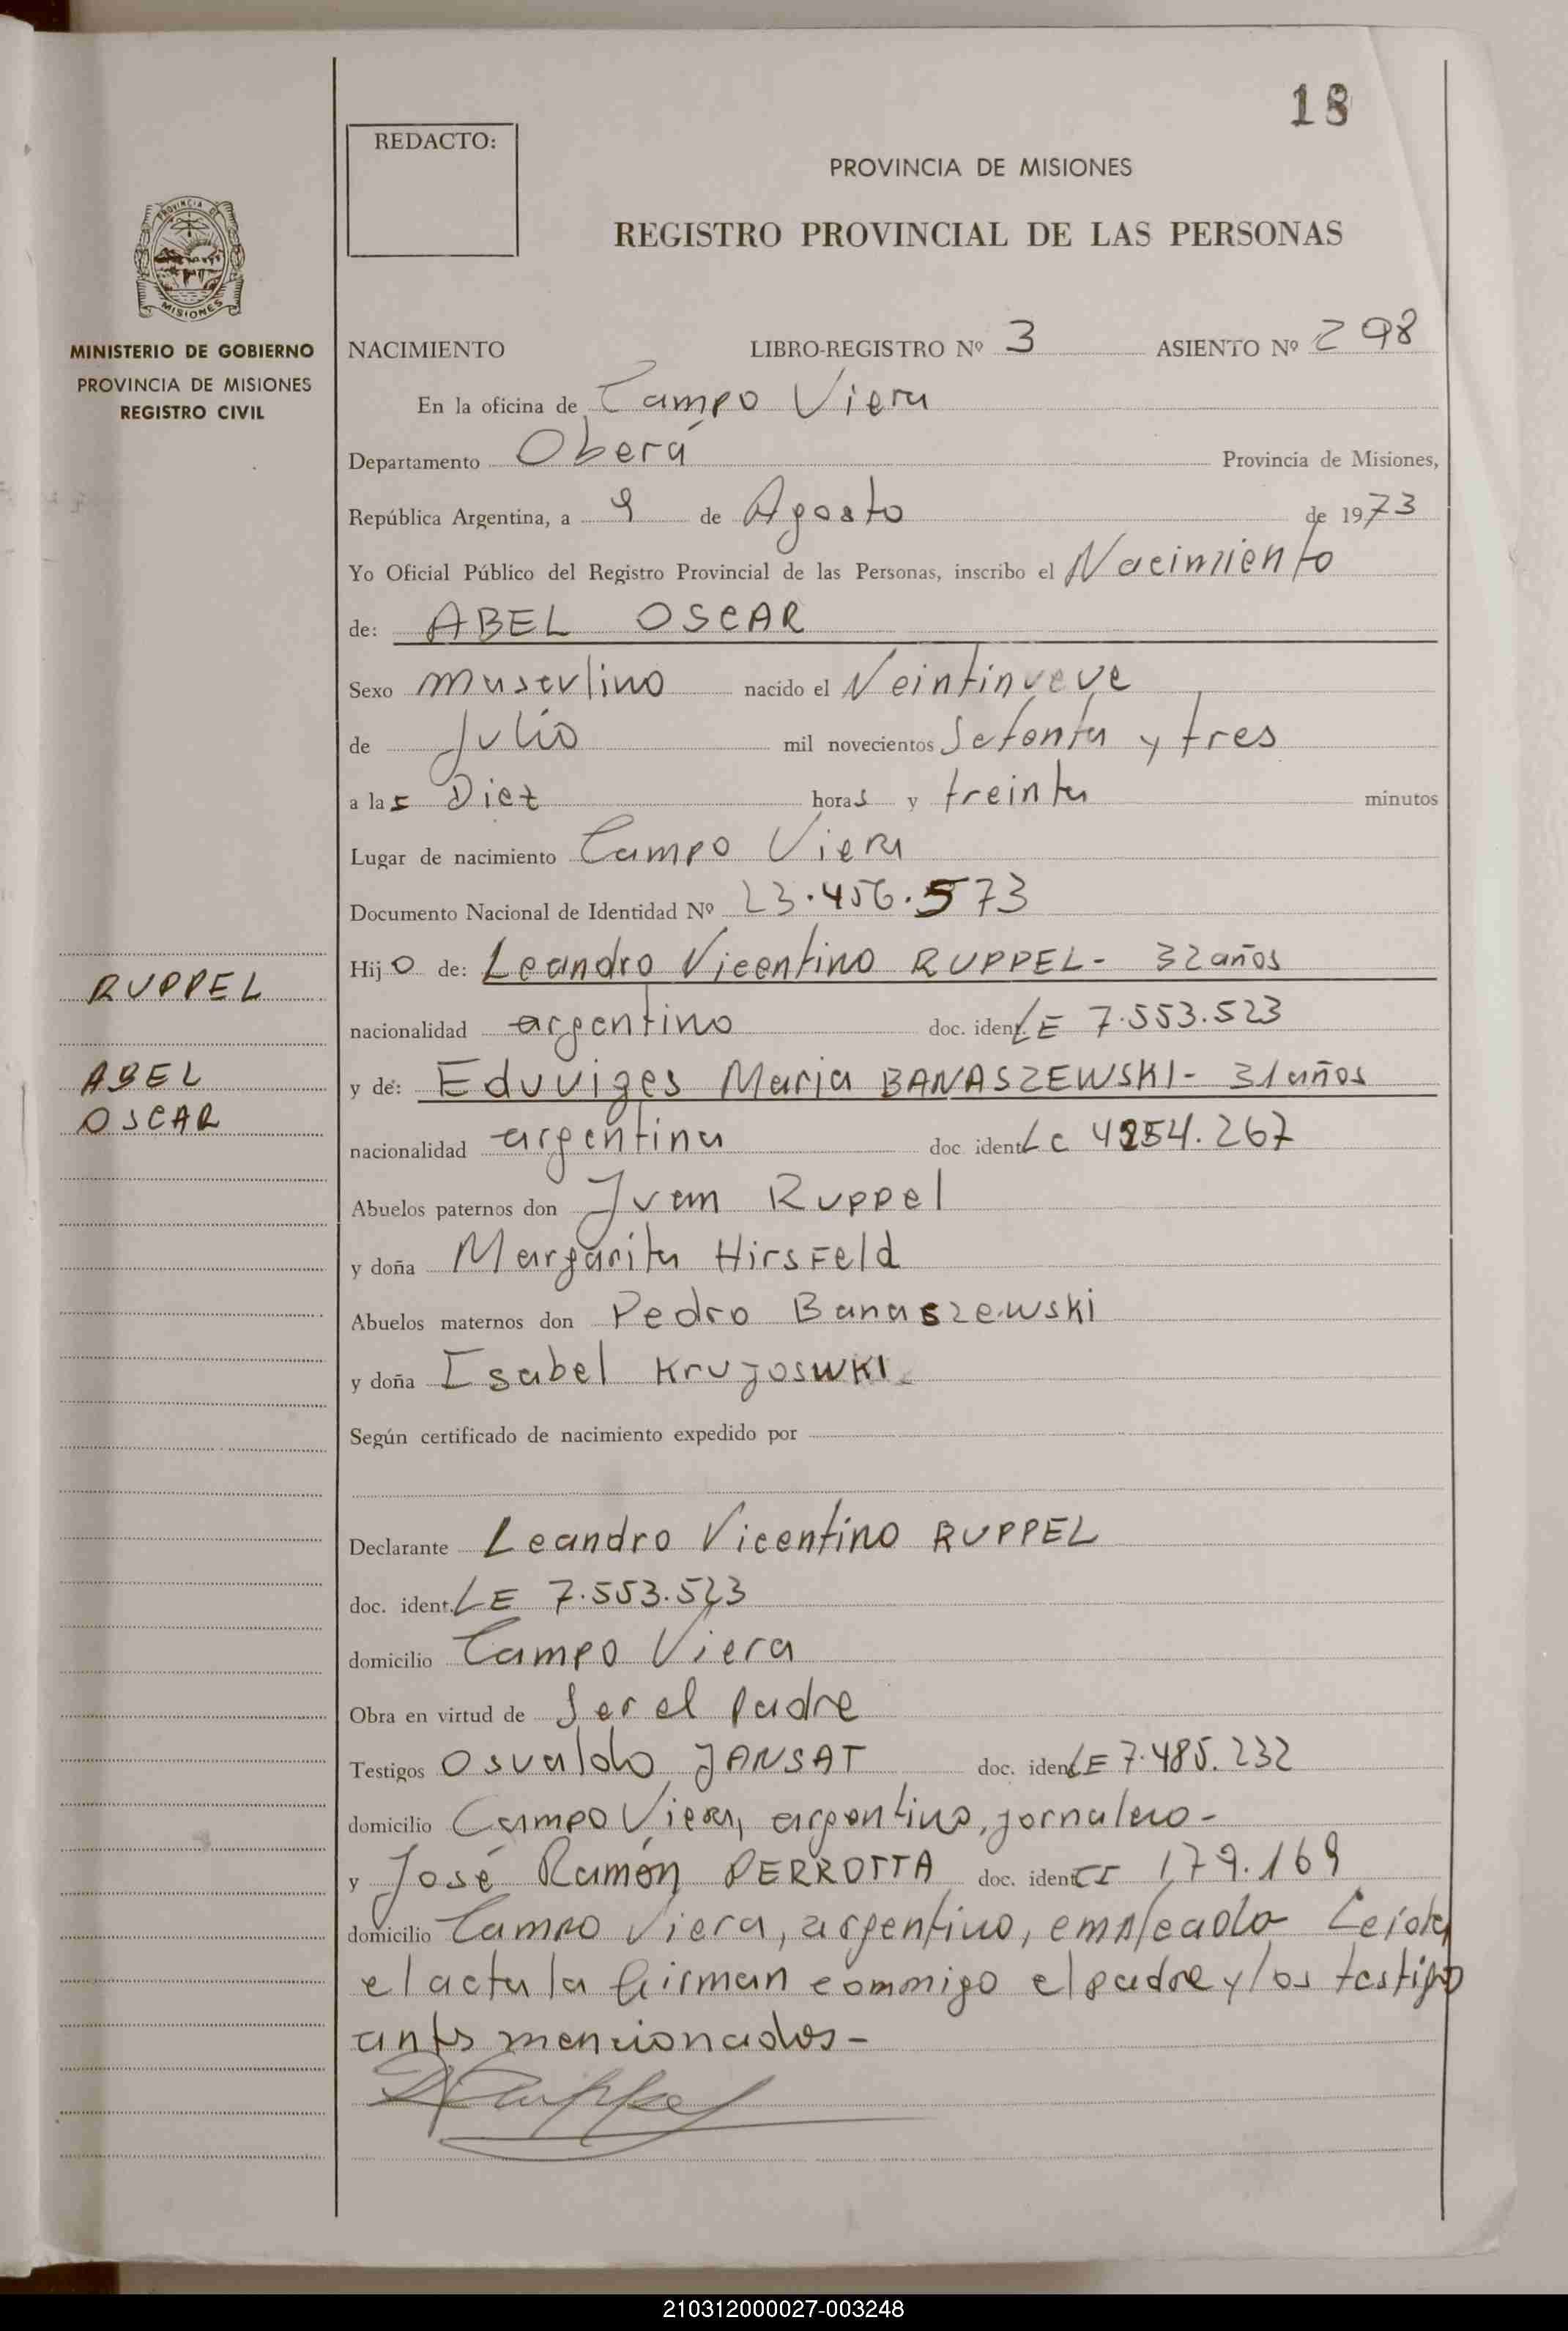 18
REDACTO:
PROVINCIA DE MISIONES
REGISTRO PROVINCIAL DE LAS PERSONAS
PROVINCIA DE
MISIONES
MINISTERIO DE GOBIERNO
PROVINCIA DE MISIONES
REGISTRO CIVIL
NACIMIENTO LIBRO-REGISTRO Nº 3 ASIENTO Nº 298
En la oficina de Campo Viera
Departamento Oberá Provincia de Misiones,
República Argentina, a 9 de Agosto de 1973
Yo Oficial Público del Registro Provincial de las Personas, inscribo el Nacimiento
de: ABEL OSCAR
Sexo masculino nacido el Veintinueve
de Julio mil novecientos Setenta y tres
a las Diez horas y treinta minutos
Lugar de nacimiento Campo Viera
Documento Nacional de Identidad Nº 23.456.573
Hijo de: Leandro Vicentino RUPPEL- 32 años
RUPPEL
nacionalidad argentino doc. ident. LE 7.553.523
ABEL
y de: Eduviges Maria BANASZEWSKI- 31 años
OSCAR
nacionalidad argentina doc ident LC 4254.267
Abuelos paternos don Juan Ruppel
y doña Margarita HirsFeld
Abuelos maternos don Pedro Banaszewski
y doña Isabel KruJosWKI
Según certificado de nacimiento expedido por
Declarante Leandro Vicentino RUPPEL
doc. ident. LE 7.553.523
domicilio Campo Viera
Obra en virtud de Ser el padre
Testigos Osvaldo JANSAT doc. ident LE 7.485.232
domicilio Campo Viera, argentino, jornalero-
y José Ramón PERROTTA doc. ident CI 179.169
domicilio Campo Viera, argentino, empleado Leida
el acta la firman conmigo el padre y los testigo
antes mencionados-
Ruppel
210312000027-003248